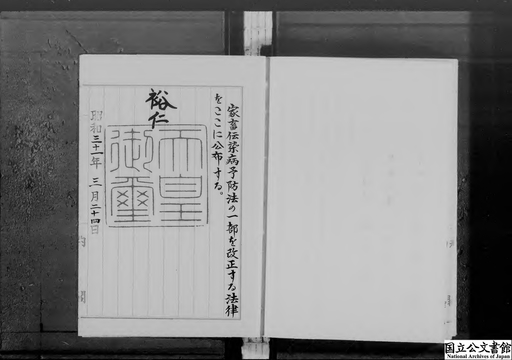 家畜伝染病予防法の一部を改正する法律
をここに公布する。
裕仁
天皇
御璽
昭和三十一年三月二十四日
国立公文書館
National Archives of Japan